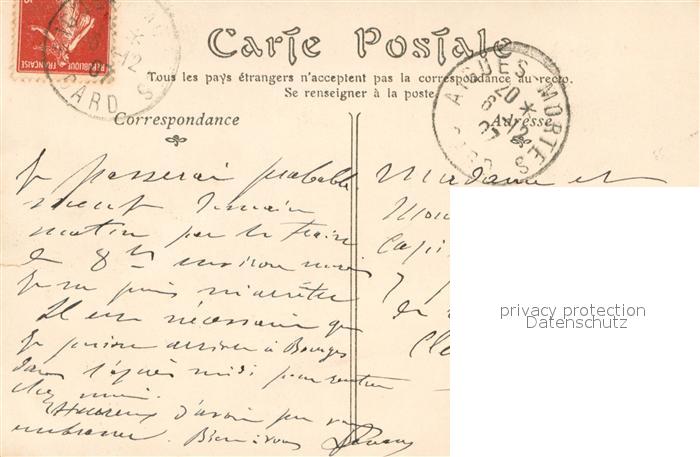 RÉPUBLIQUE FRANÇAISE
GARD
12
Carte Postale
Tous les pays étrangers n'acceptent pas la correspondance au recto.
Se renseigner à la poste
AIGUES MORTES
20 *
8-12
GARD
Correspondance
Adresse
Je passerai probable
ment demain
matin par le train
de 8h environ mais
je ne puis m'arrêter
Il est nécessaire que
je puisse arriver à Bourges
dans l'après midi pour rentrer
chez moi.
Heureux d'avoir pu vous
embrasser. Bien à vous
Madame et
Mon
Capi
7
Cle
privacy protection
Datenschutz